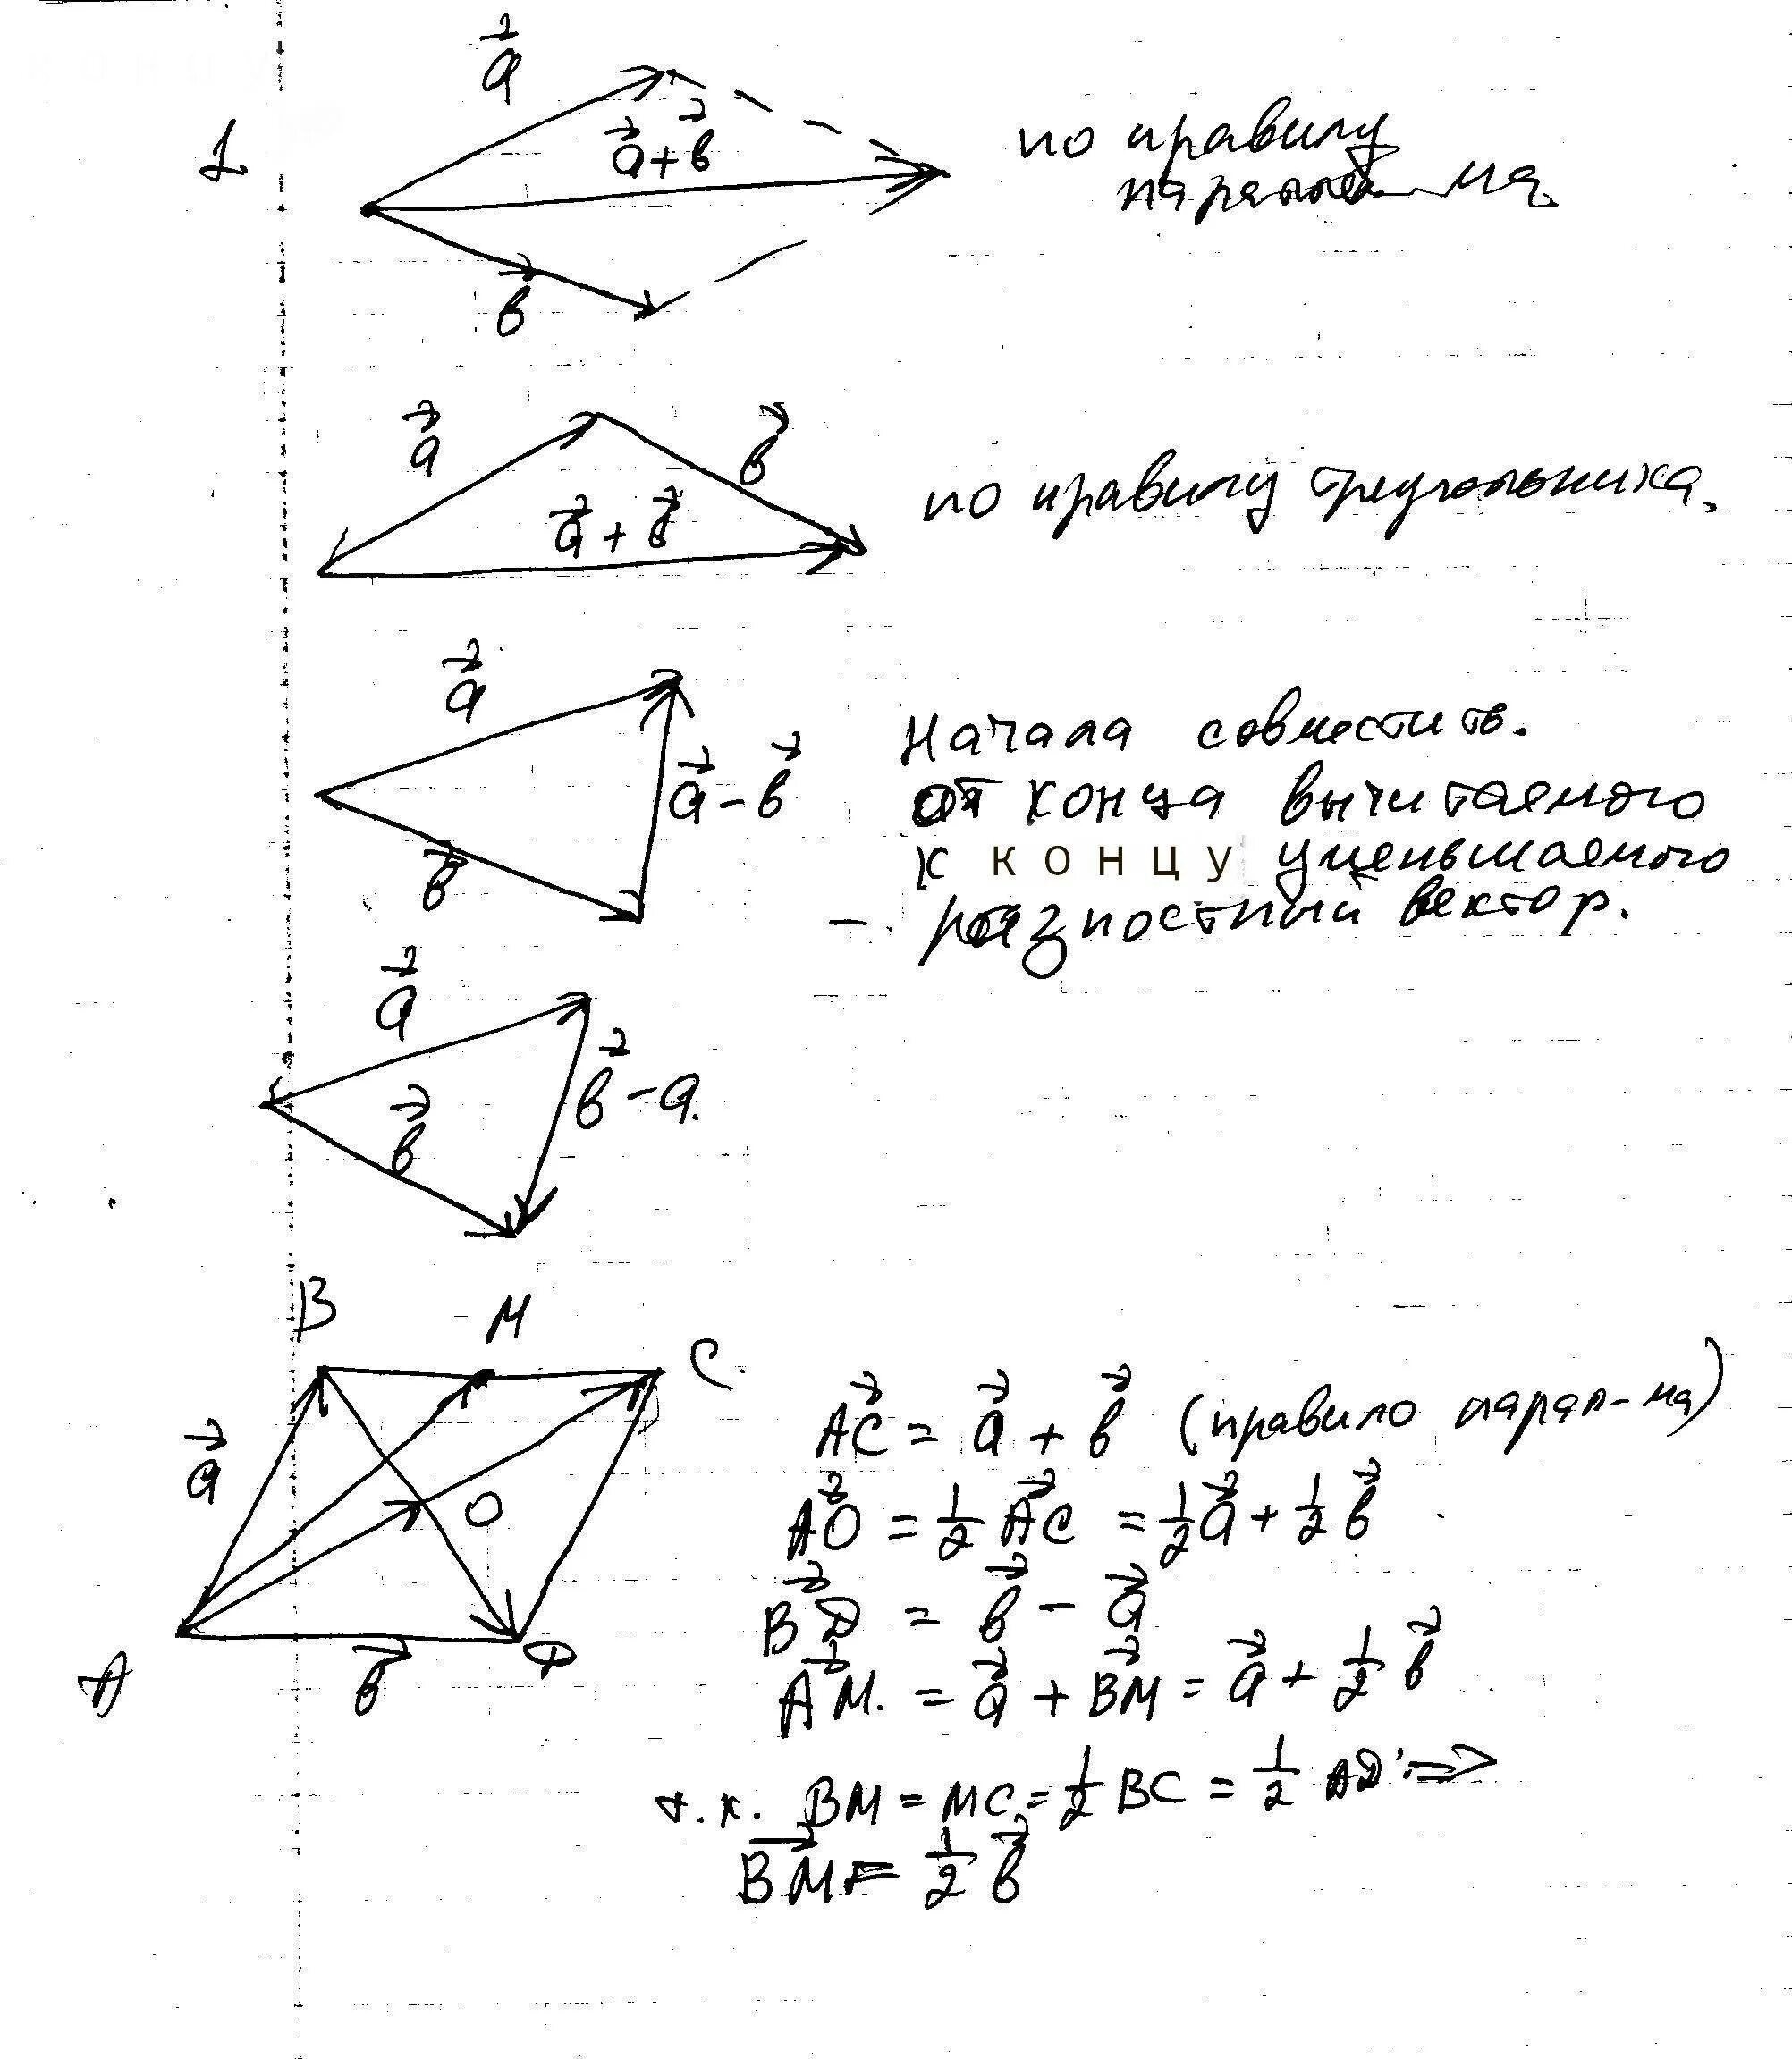 1.
a⃗
a⃗+в⃗
в⃗
по правилу
паралл-ма
a⃗
в⃗
a⃗ + в⃗
по правилу треугольника.
a⃗
в⃗
a⃗ - в⃗
Начала совместить.
от конца вычитаемого
к концу уменьшаемого
- разностный вектор.
a⃗
в⃗
в⃗ - a.
B M C.
a⃗
O
A в⃗ D
AC⃗ = a⃗ + в⃗ (правило парал-ма)
AO⃗ = 1/2 AC⃗ = 1/2 a⃗ + 1/2 в⃗
BD⃗ = в⃗ - a⃗
AM⃗. = a⃗ + BM⃗ = a⃗ + 1/2 в⃗
т.к. BM = MC = 1/2 BC = 1/2 AD =>
BM⃗ = 1/2 в⃗